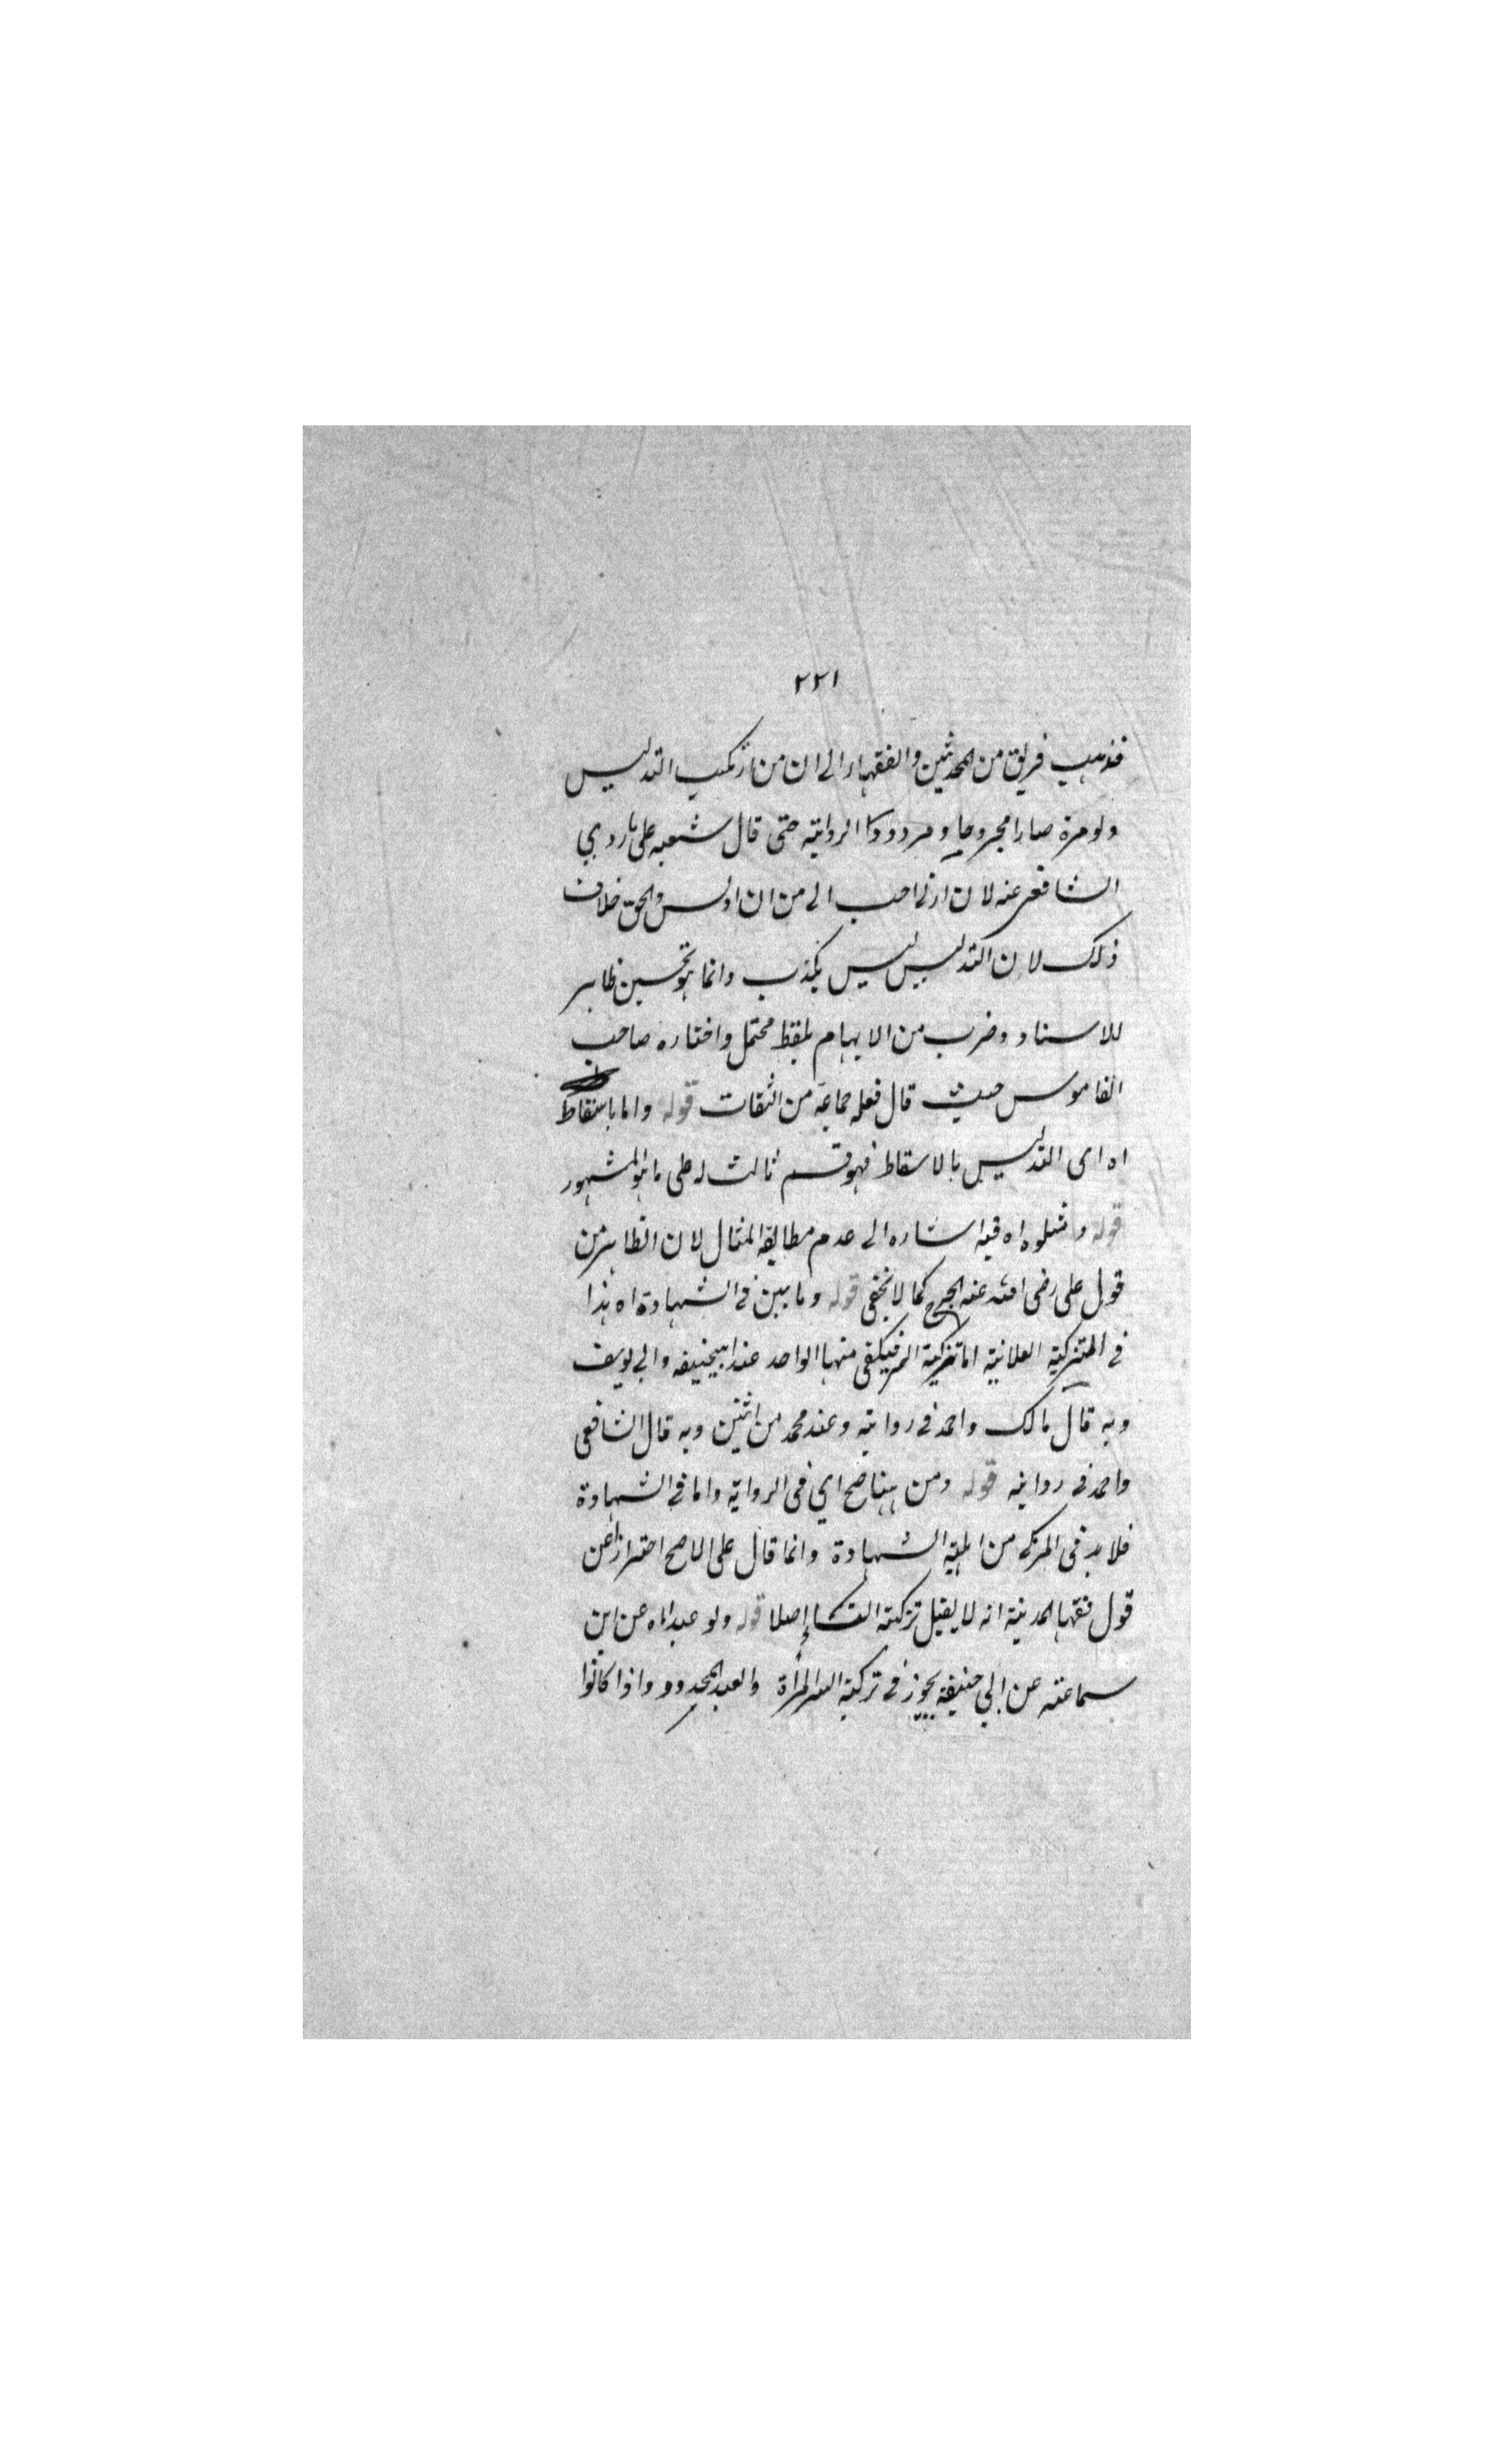 ٢٢١
فذهب فريق من المحدثين والفقهاء الى ان من ارتكب التدليس
ولو مرة صار مجروحا و مردودا الرواية حتى قال شعبه على ما روى
الشافعى عنه لان ازنى احب الى من ان ادلس والحق خلاف
ذلك لان التدليس ليس بكذب وانما هو تحسين ظاهر
للاسناد وضرب من الايهام بلفظ محتمل واختاره صاحب
القاموس حيث قال فعله جماعة من الثقات قوله واما باسقاط
اه اى التدليس بالاسقاط فهو قسم ثالث له على ما هو المشهور
قوله ومثلوه اه فيه اشاره الى عدم مطابقة المثال لان الظاهر من
قول على رضى الله عنه الجرح كما لا يخفى قوله وما بين فى الشهادة اه هذا
فى التزكية العلانية اما تزكية السر فيكفى منها الواحد عند ابيحنيفه وابى يوسف
وبه قال مالك واحمد فى رواية وعند محمد من اثنين وبه قال الشافعى
واحمد فى رواية قوله ومن ههنا صح اي فى الرواية واما فى الشهادة
فلابد فى المزكى من اهلية الشهادة وانما قال على الاصح احترازا عن
قول فقها المدينة انه لا يقبل تزكية النسا اصلا قوله ولو عبدا اه عن ابن
سماعته عن ابي حنيفة يجوز فى تزكية السر المرأة والعبد المحدود واذا كانوا